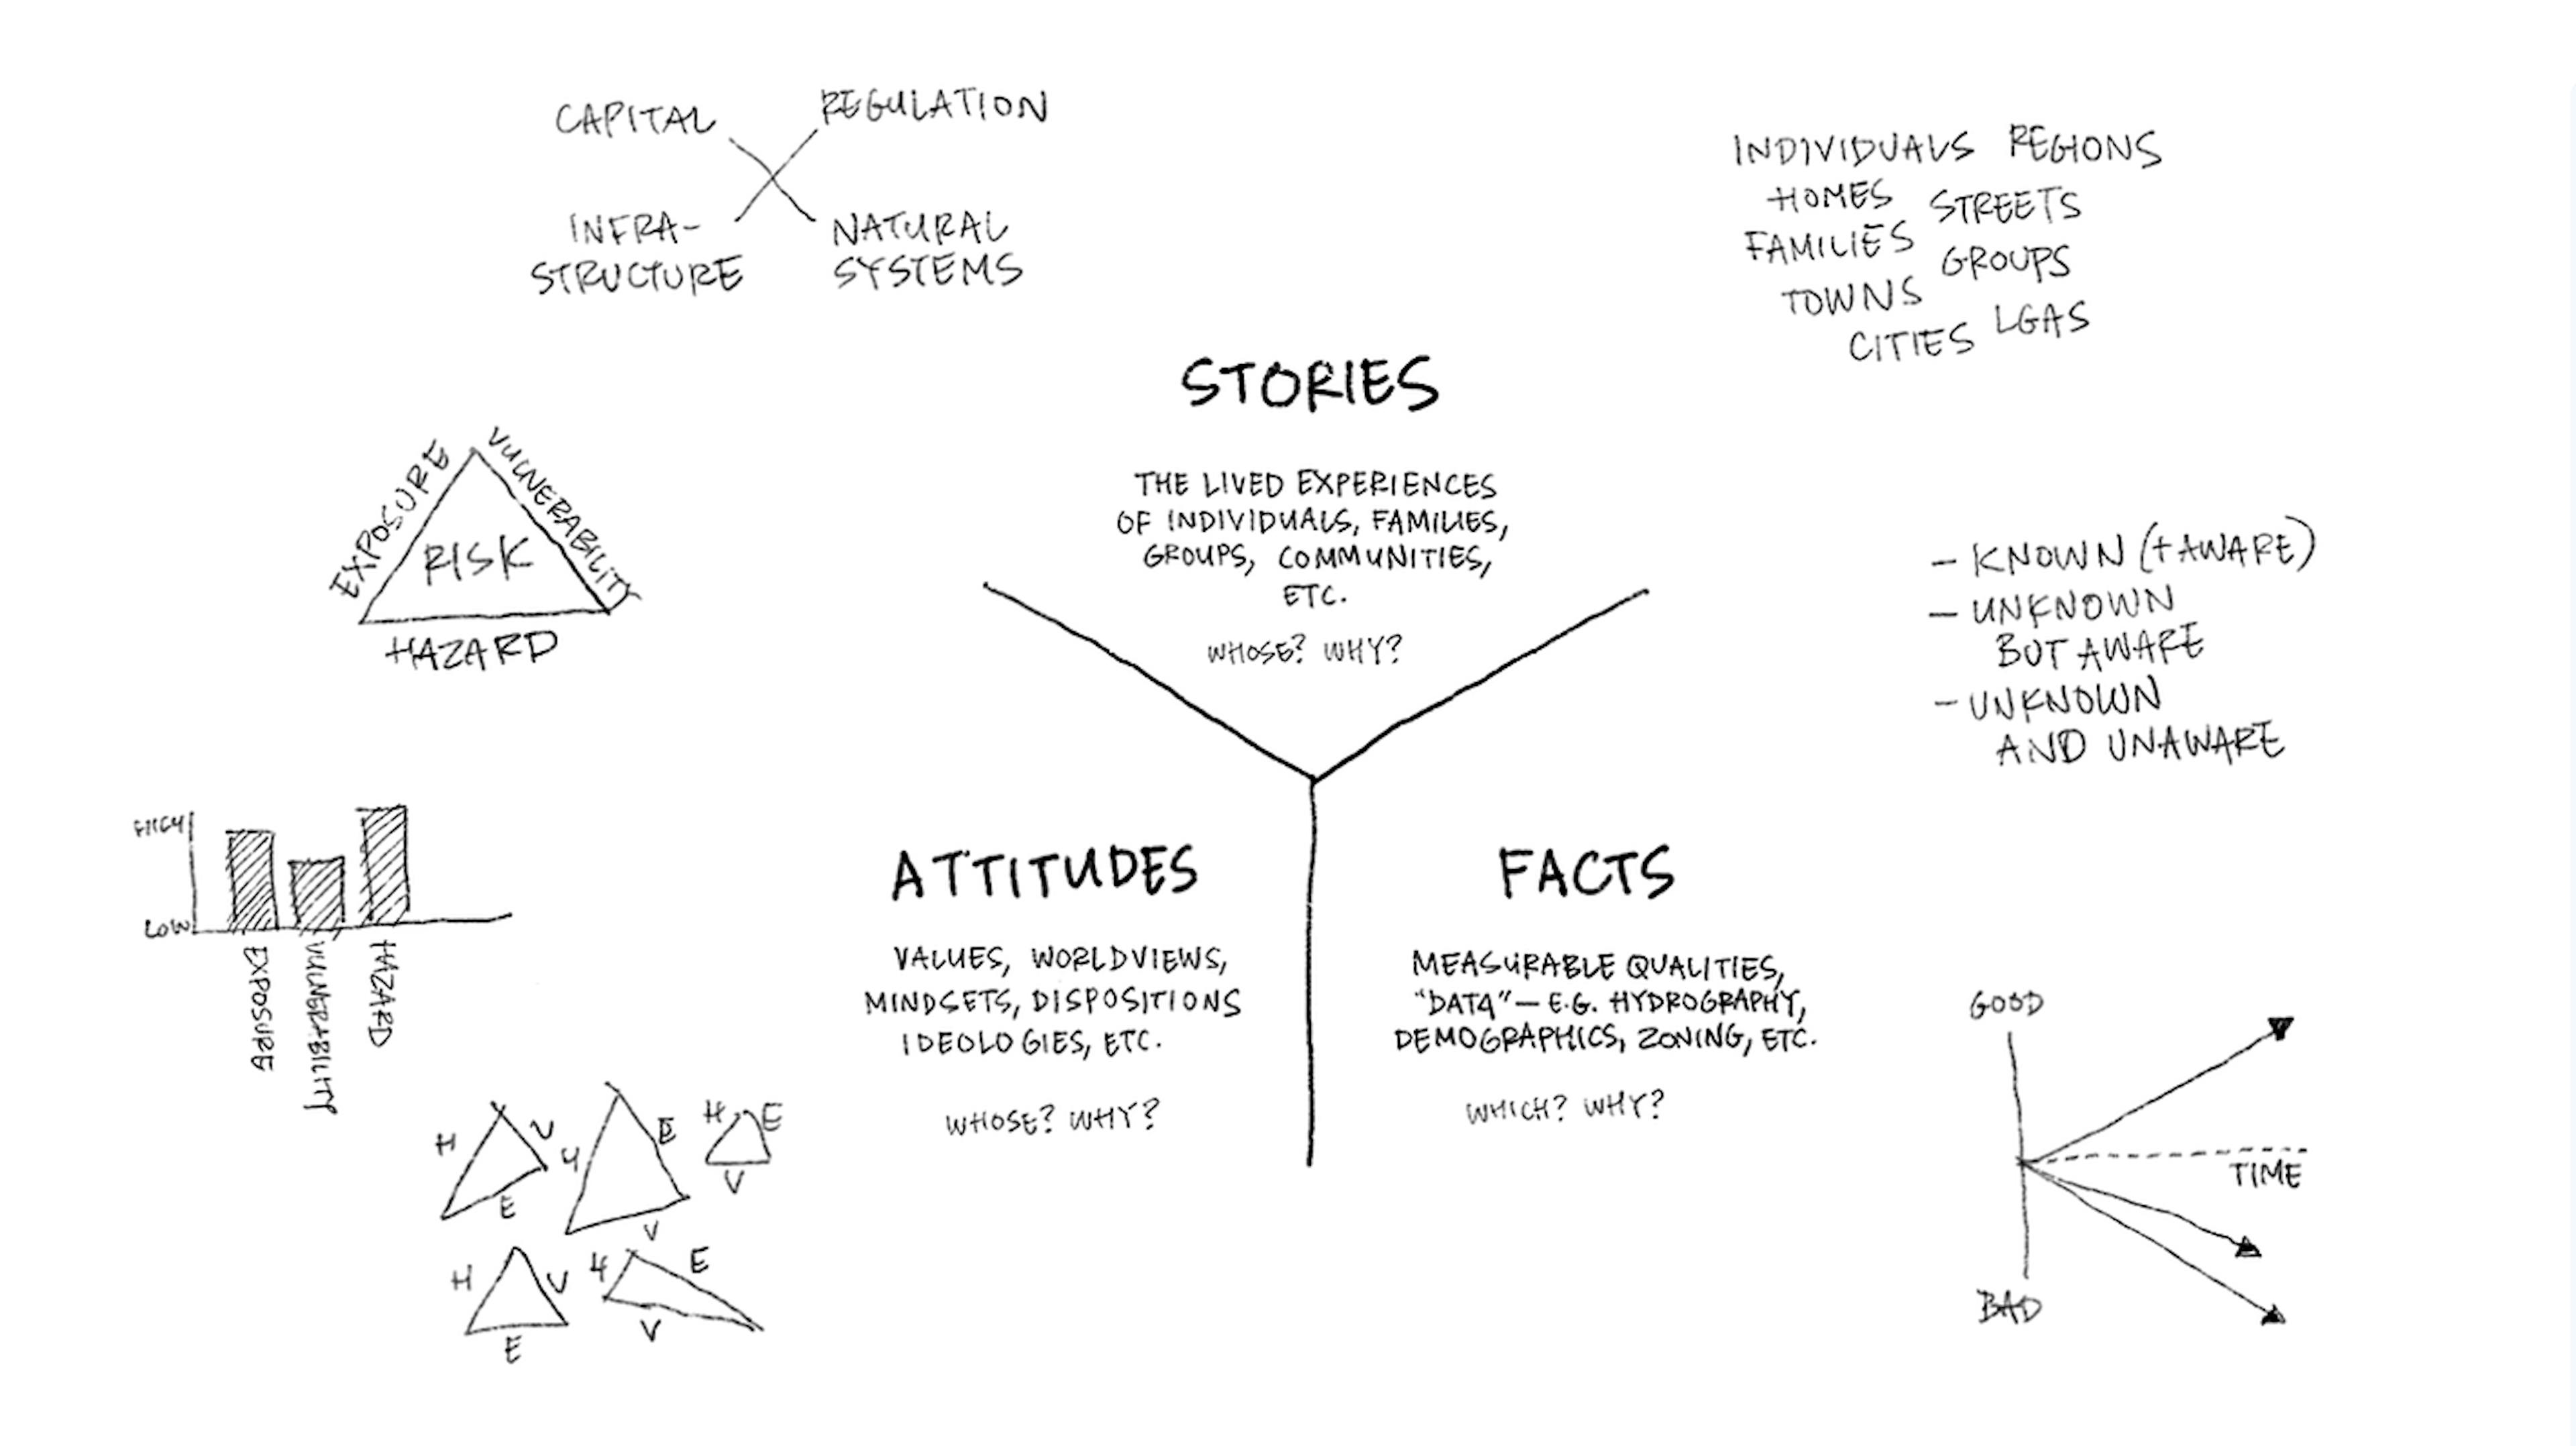 CAPITAL
REGULATION
INFRA-
STRUCTURE
NATURAL
SYSTEMS
INDIVIDUALS REGIONS
HOMES STREETS
FAMILIES GROUPS
TOWNS LGAS
CITIES
STORIES
THE LIVED EXPERIENCES
OF INDIVIDUALS, FAMILIES,
GROUPS, COMMUNITIES,
ETC.
WHOSE? WHY?
EXPOSURE
VULNERABILITY
RISK
HAZARD
- KNOWN (+AWARE)
- UNKNOWN
BUT AWARE
- UNKNOWN
AND UNAWARE
HIGH
LOW
EXPOSURE
VULNERABILITY
HAZARD
ATTITUDES
VALUES, WORLDVIEWS,
MINDSETS, DISPOSITIONS
IDEOLOGIES, ETC.
WHOSE? WHY?
FACTS
MEASURABLE QUALITIES,
"DATA" — E.G. HYDROGRAPHY,
DEMOGRAPHICS, ZONING, ETC.
WHICH? WHY?
H V
E
H E
V
H E
V
H V
E
H E
V
GOOD
TIME
BAD